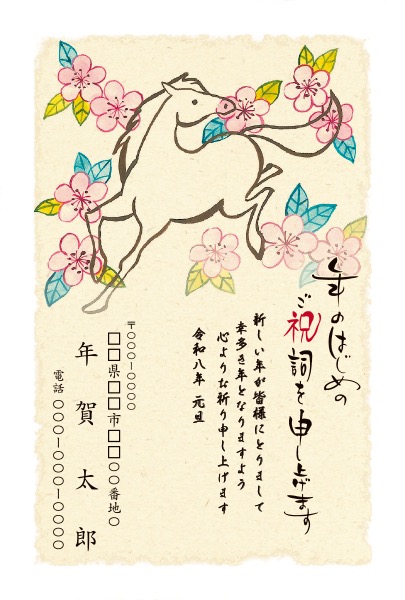 年のはじめの
ご祝詞を申し上げます
新しい年が皆様にとりまして
幸多き年となりますよう
心よりお祈り申し上げます
令和八年 元旦
〒○○○-○○○○
□□県□□市□□○○番地○
年賀太郎
電話 ○○○-○○○-○○○○